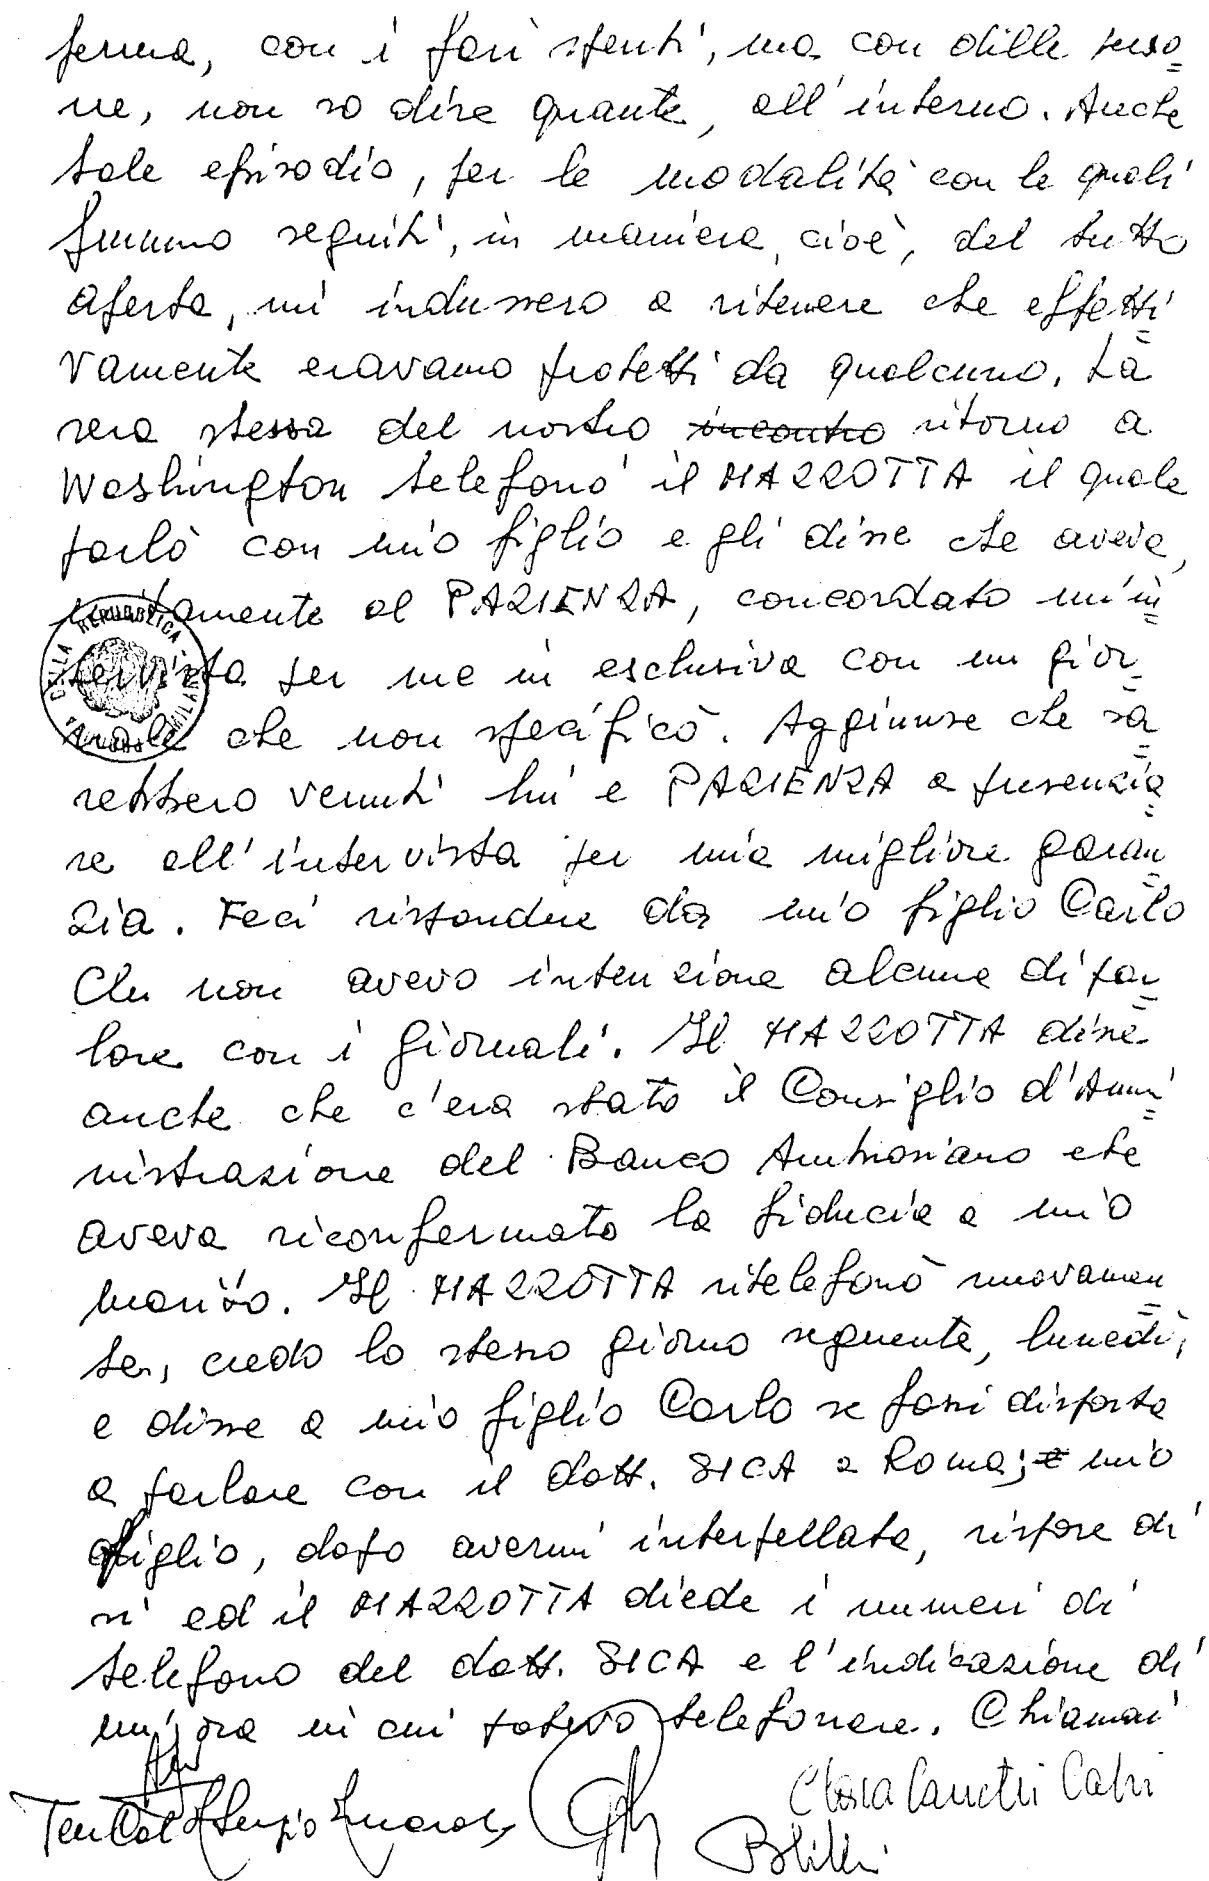 ferma, con i fari spenti, ma con delle perso=
ne, non so dire quante, all'interno. Anche
tale episodio, per le modalità con le quali
fummo seguiti, in maniera, cioè, del tutto
aperta, mi indussero a ritenere che effetti=
vamente eravamo protetti da qualcuno. La
sera stessa del nostro incontro ritorno a
Washington telefonò il MAZZOTTA il quale
parlò con mio figlio e gli disse che aveva,
unitamente al PAZIENZA, concordato un'in=
tervista per me in esclusiva con un gior=
nale che non specificò. Aggiunse che sa=
rebbero venuti lui e PAZIENZA a presenzia=
re all'intervista per mia migliore garan=
zia. Feci rispondere da mio figlio Carlo
che non avevo intenzione alcuna di par=
lare con i giornali. Il MAZZOTTA disse
anche che c'era stato il Consiglio d'Ammi=
nistrazione del Banco Ambrosiano che
aveva riconfermato la fiducia a mio
marito. Il MAZZOTTA ritelefonò nuovamen=
te, credo lo stesso giorno seguente, lunedì,
e disse a mio figlio Carlo se fossi disposta
a parlare con il dott. SICA a Roma; e mio
figlio, dopo avermi interpellata, rispose di
sì ed il MAZZOTTA diede i numeri di
telefono del dott. SICA e l'indicazione di
un'ora in cui potevo telefonare. Chiamai
Clara Canetti Calvi
Ten Col